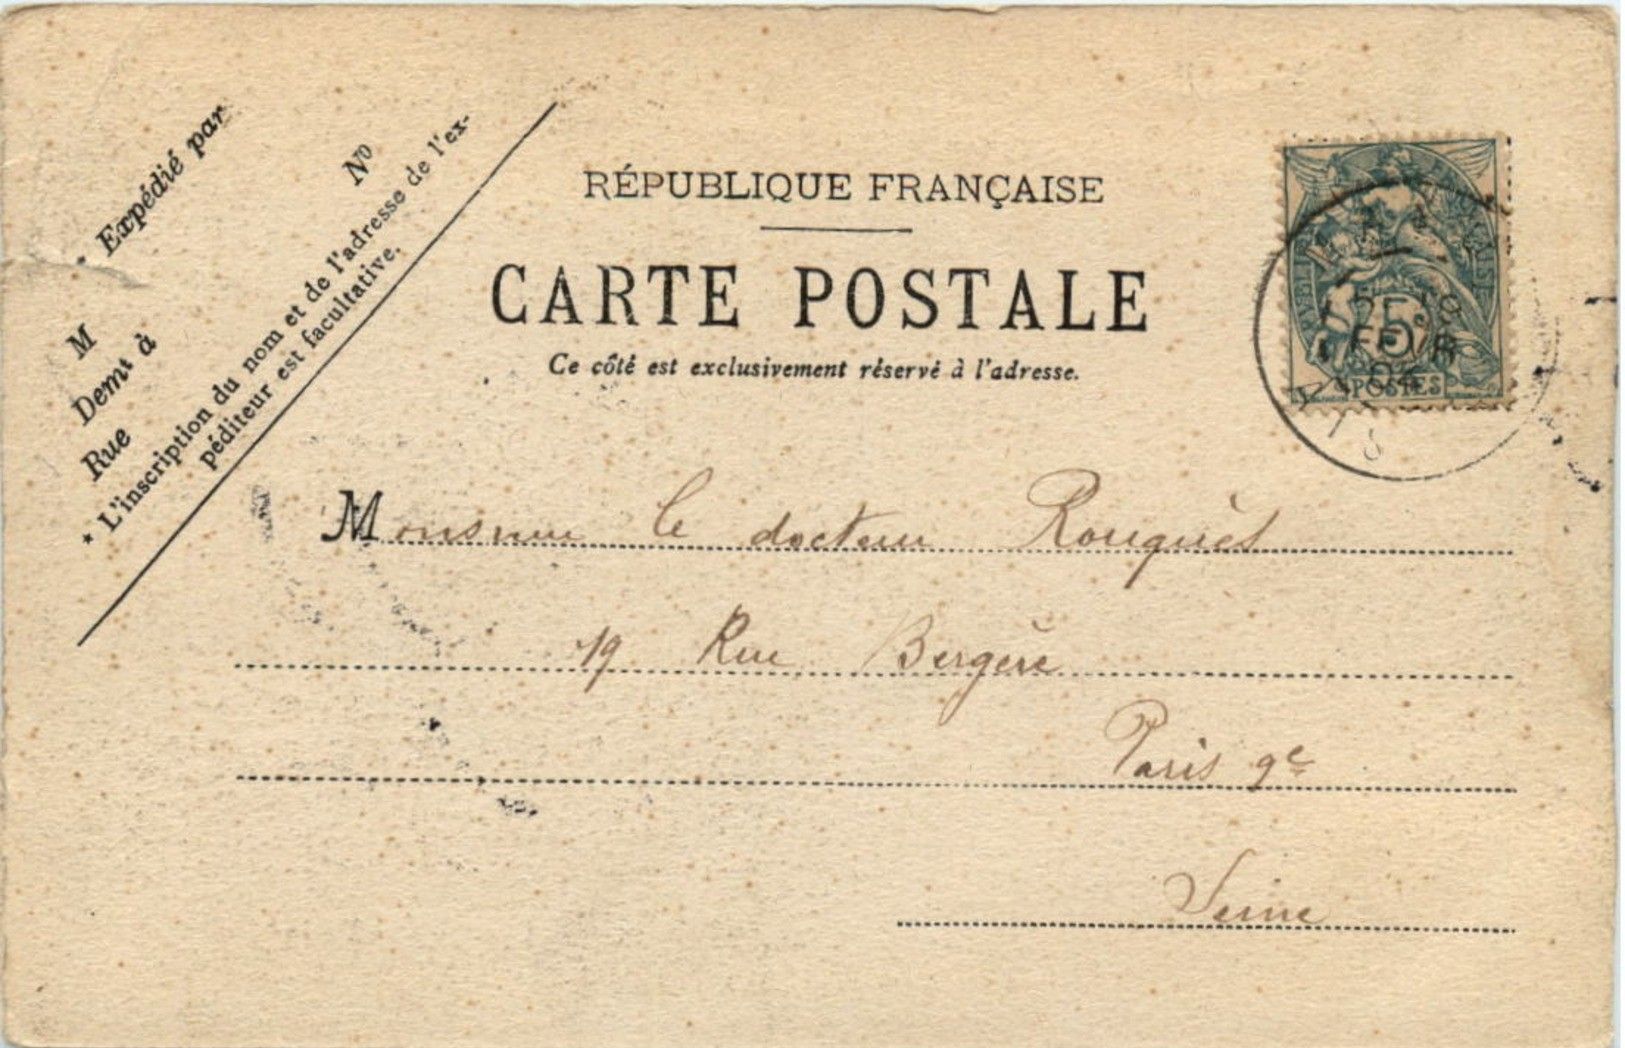 * Expédié par
M
Demt à
Rue
No
* L'inscription du nom et de l'adresse de l'ex-
péditeur est facultative.
RÉPUBLIQUE FRANÇAISE
CARTE POSTALE
Ce côté est exclusivement réservé à l'adresse.
5
POSTES
Monsieur le docteur Rouquès
19 Rue Bergère
Paris 9e
Seine